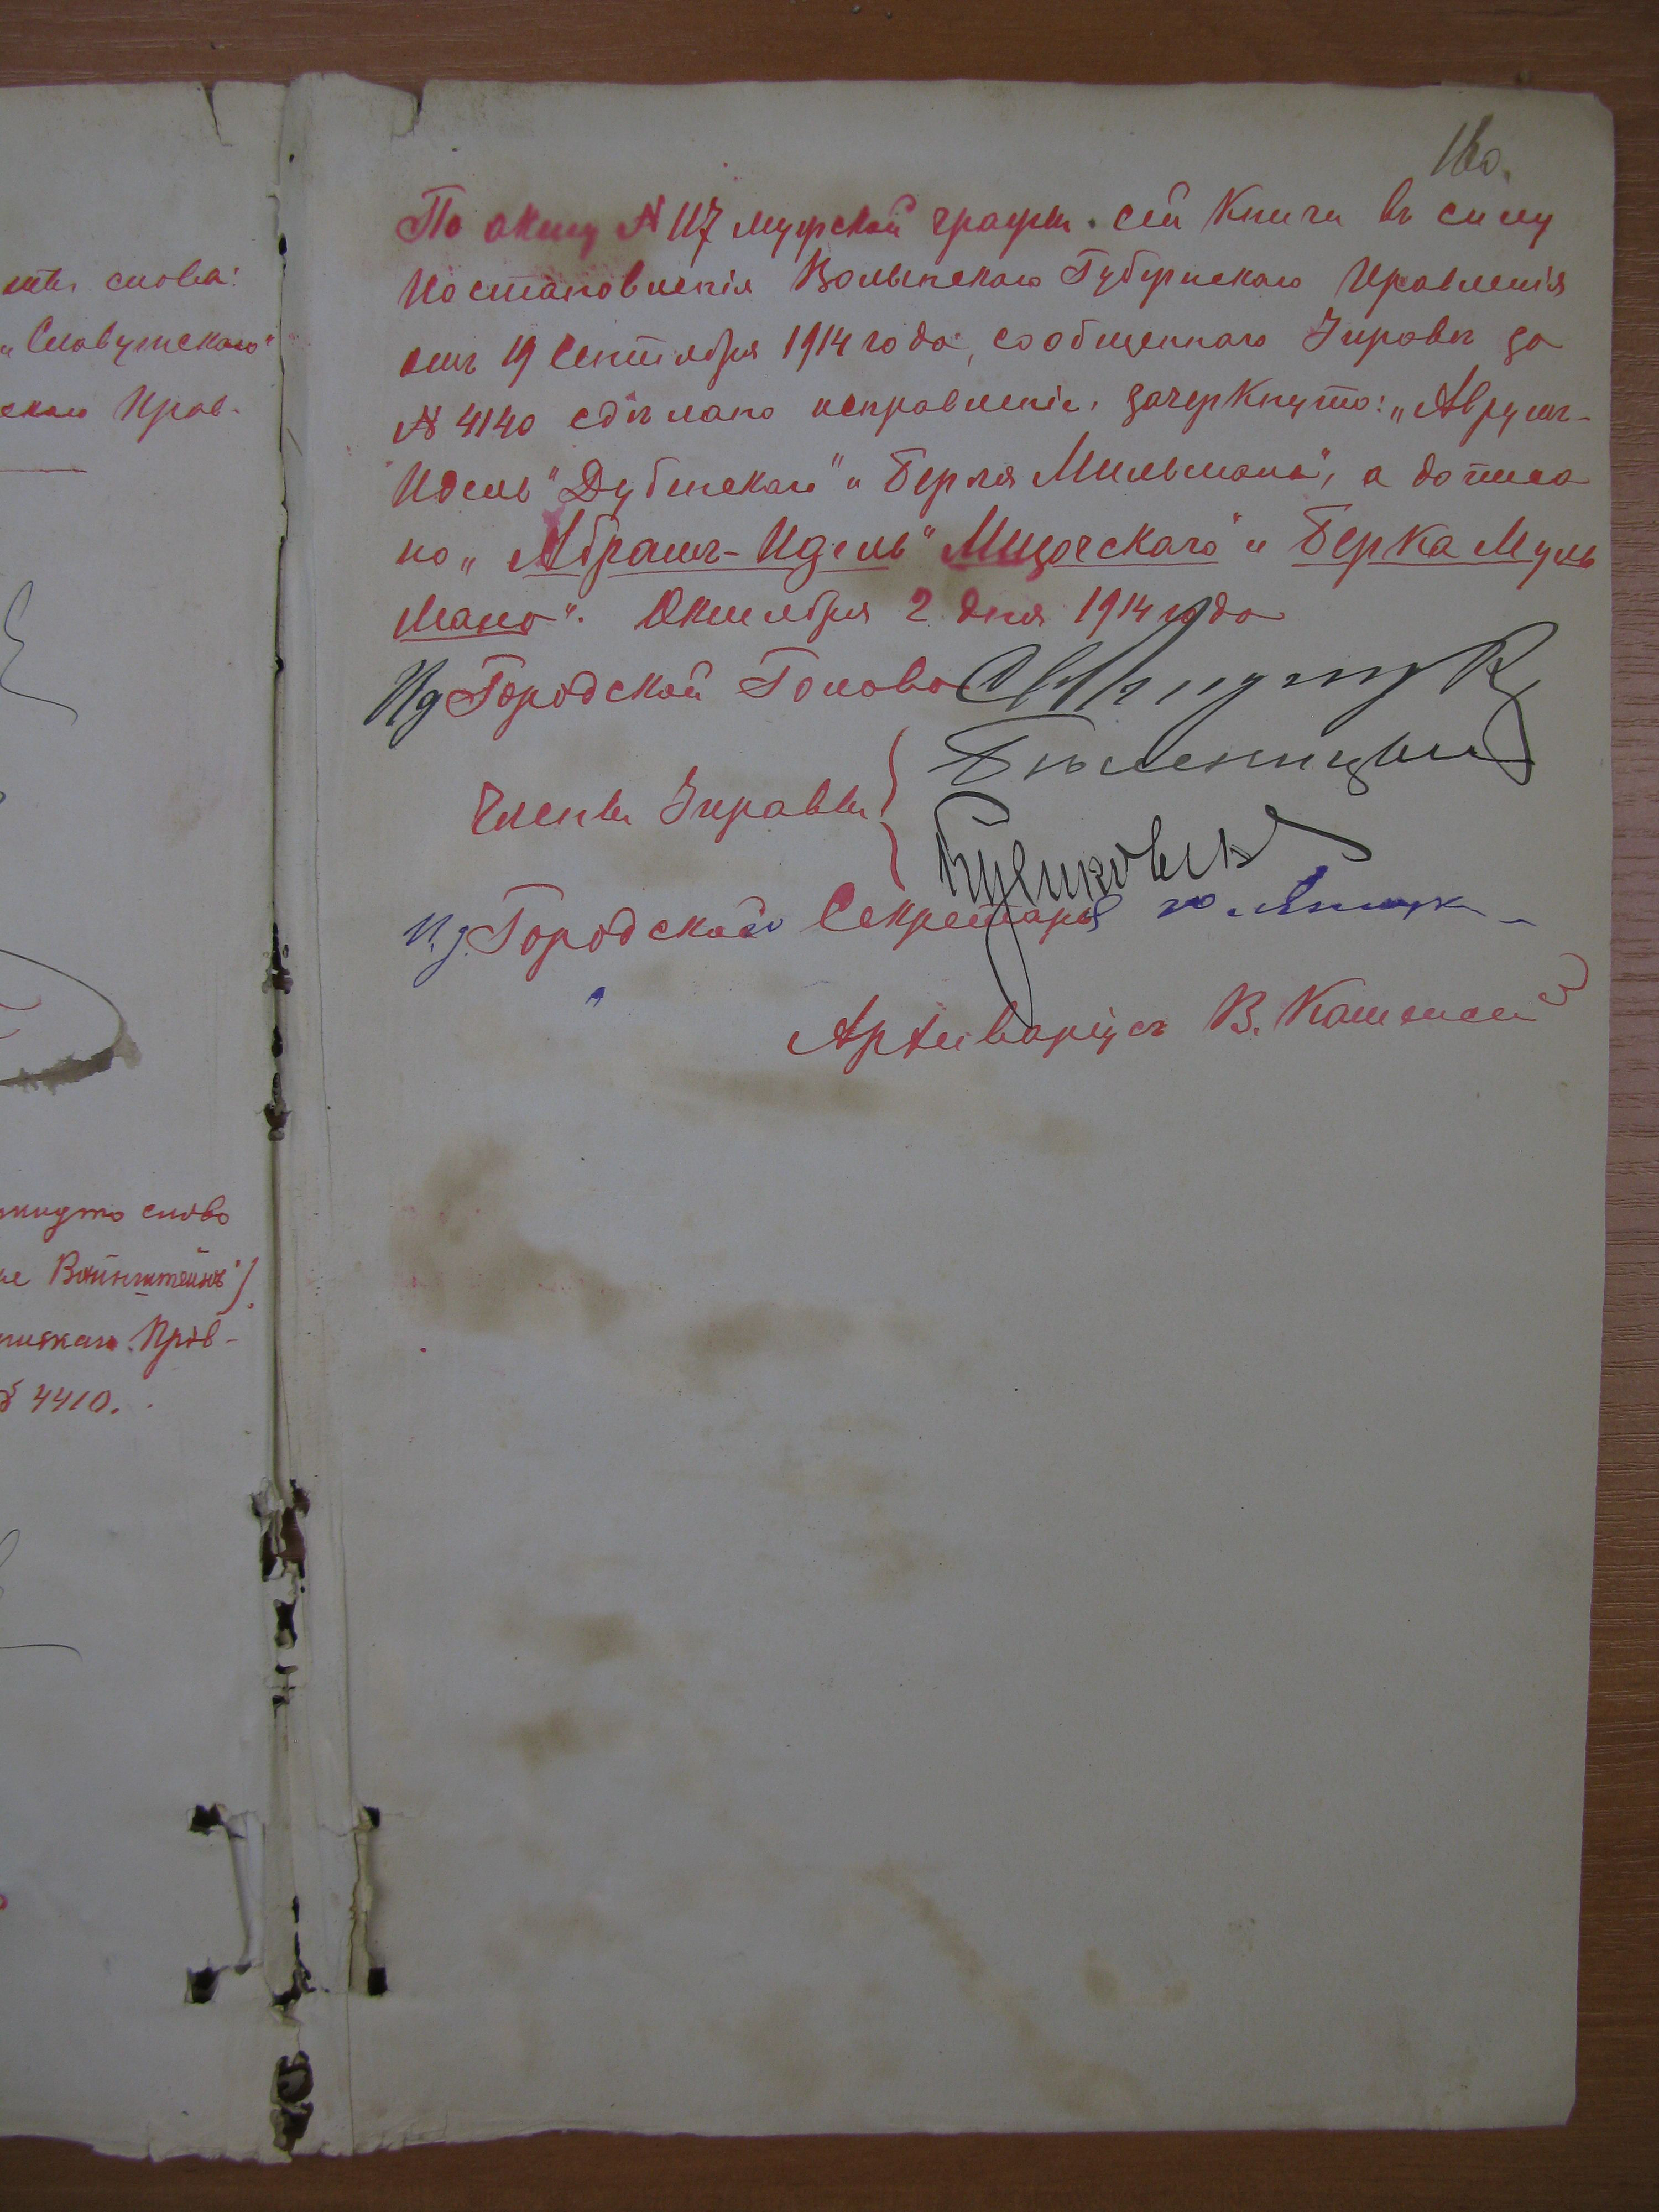 словa:
„Славутскаго"
Прав-
слово
Вайнштейнъ")
Прав-
4410.
160.
По акту № 117 мужской графы сей книги въ силу
Постановленія Волынскаго Губернскаго Правленія
отъ 19 Сентября 1914 года, сообщеннаго Управѣ за
№ 4140 сдѣлано исправленіе, зачеркнуто: „Аврумъ-
Идель" Дубенскаго" и Берля Мильмана", а дописа
но „Абрамъ-Идель" Мизочскаго" и Берка Муль
мана". Октября 2 дня 1914 года
Ид Городской Голова
Члены Управы
И.д. Городского Секретаря
Архиваріусъ В.